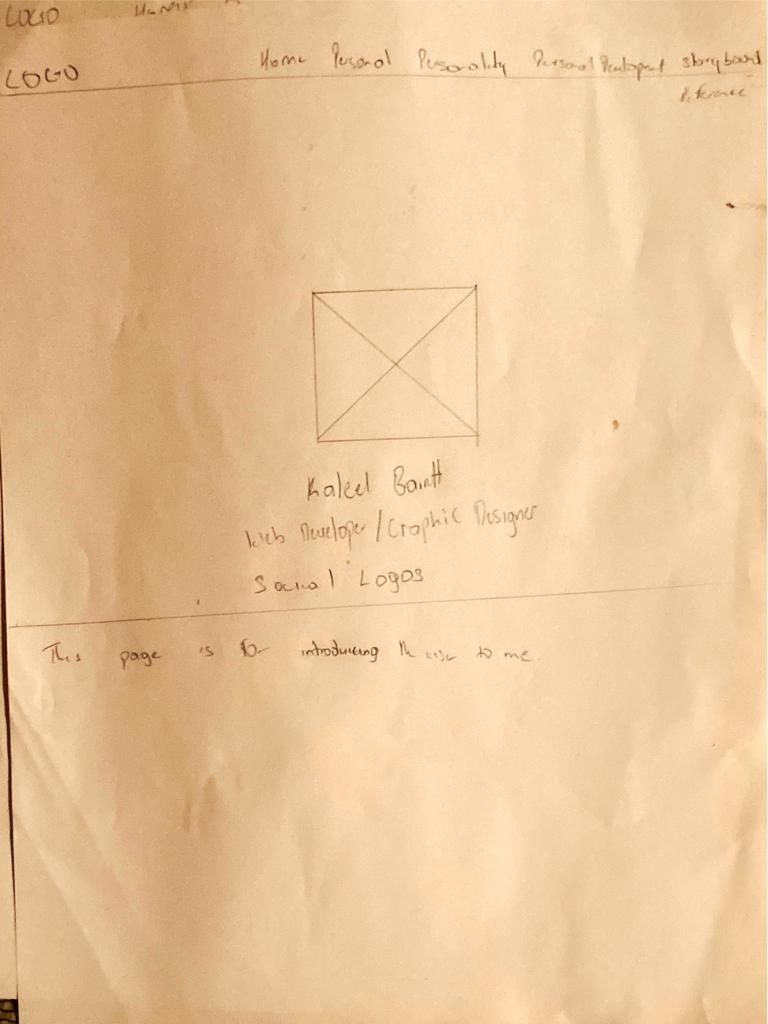 LOGO
LOGO Home Personal Personality Personal Development storyboard
Reference
Kaleel Barrtt
Web Developer/Graphic Designer
Social Logos
This page is for introducing the user to me.